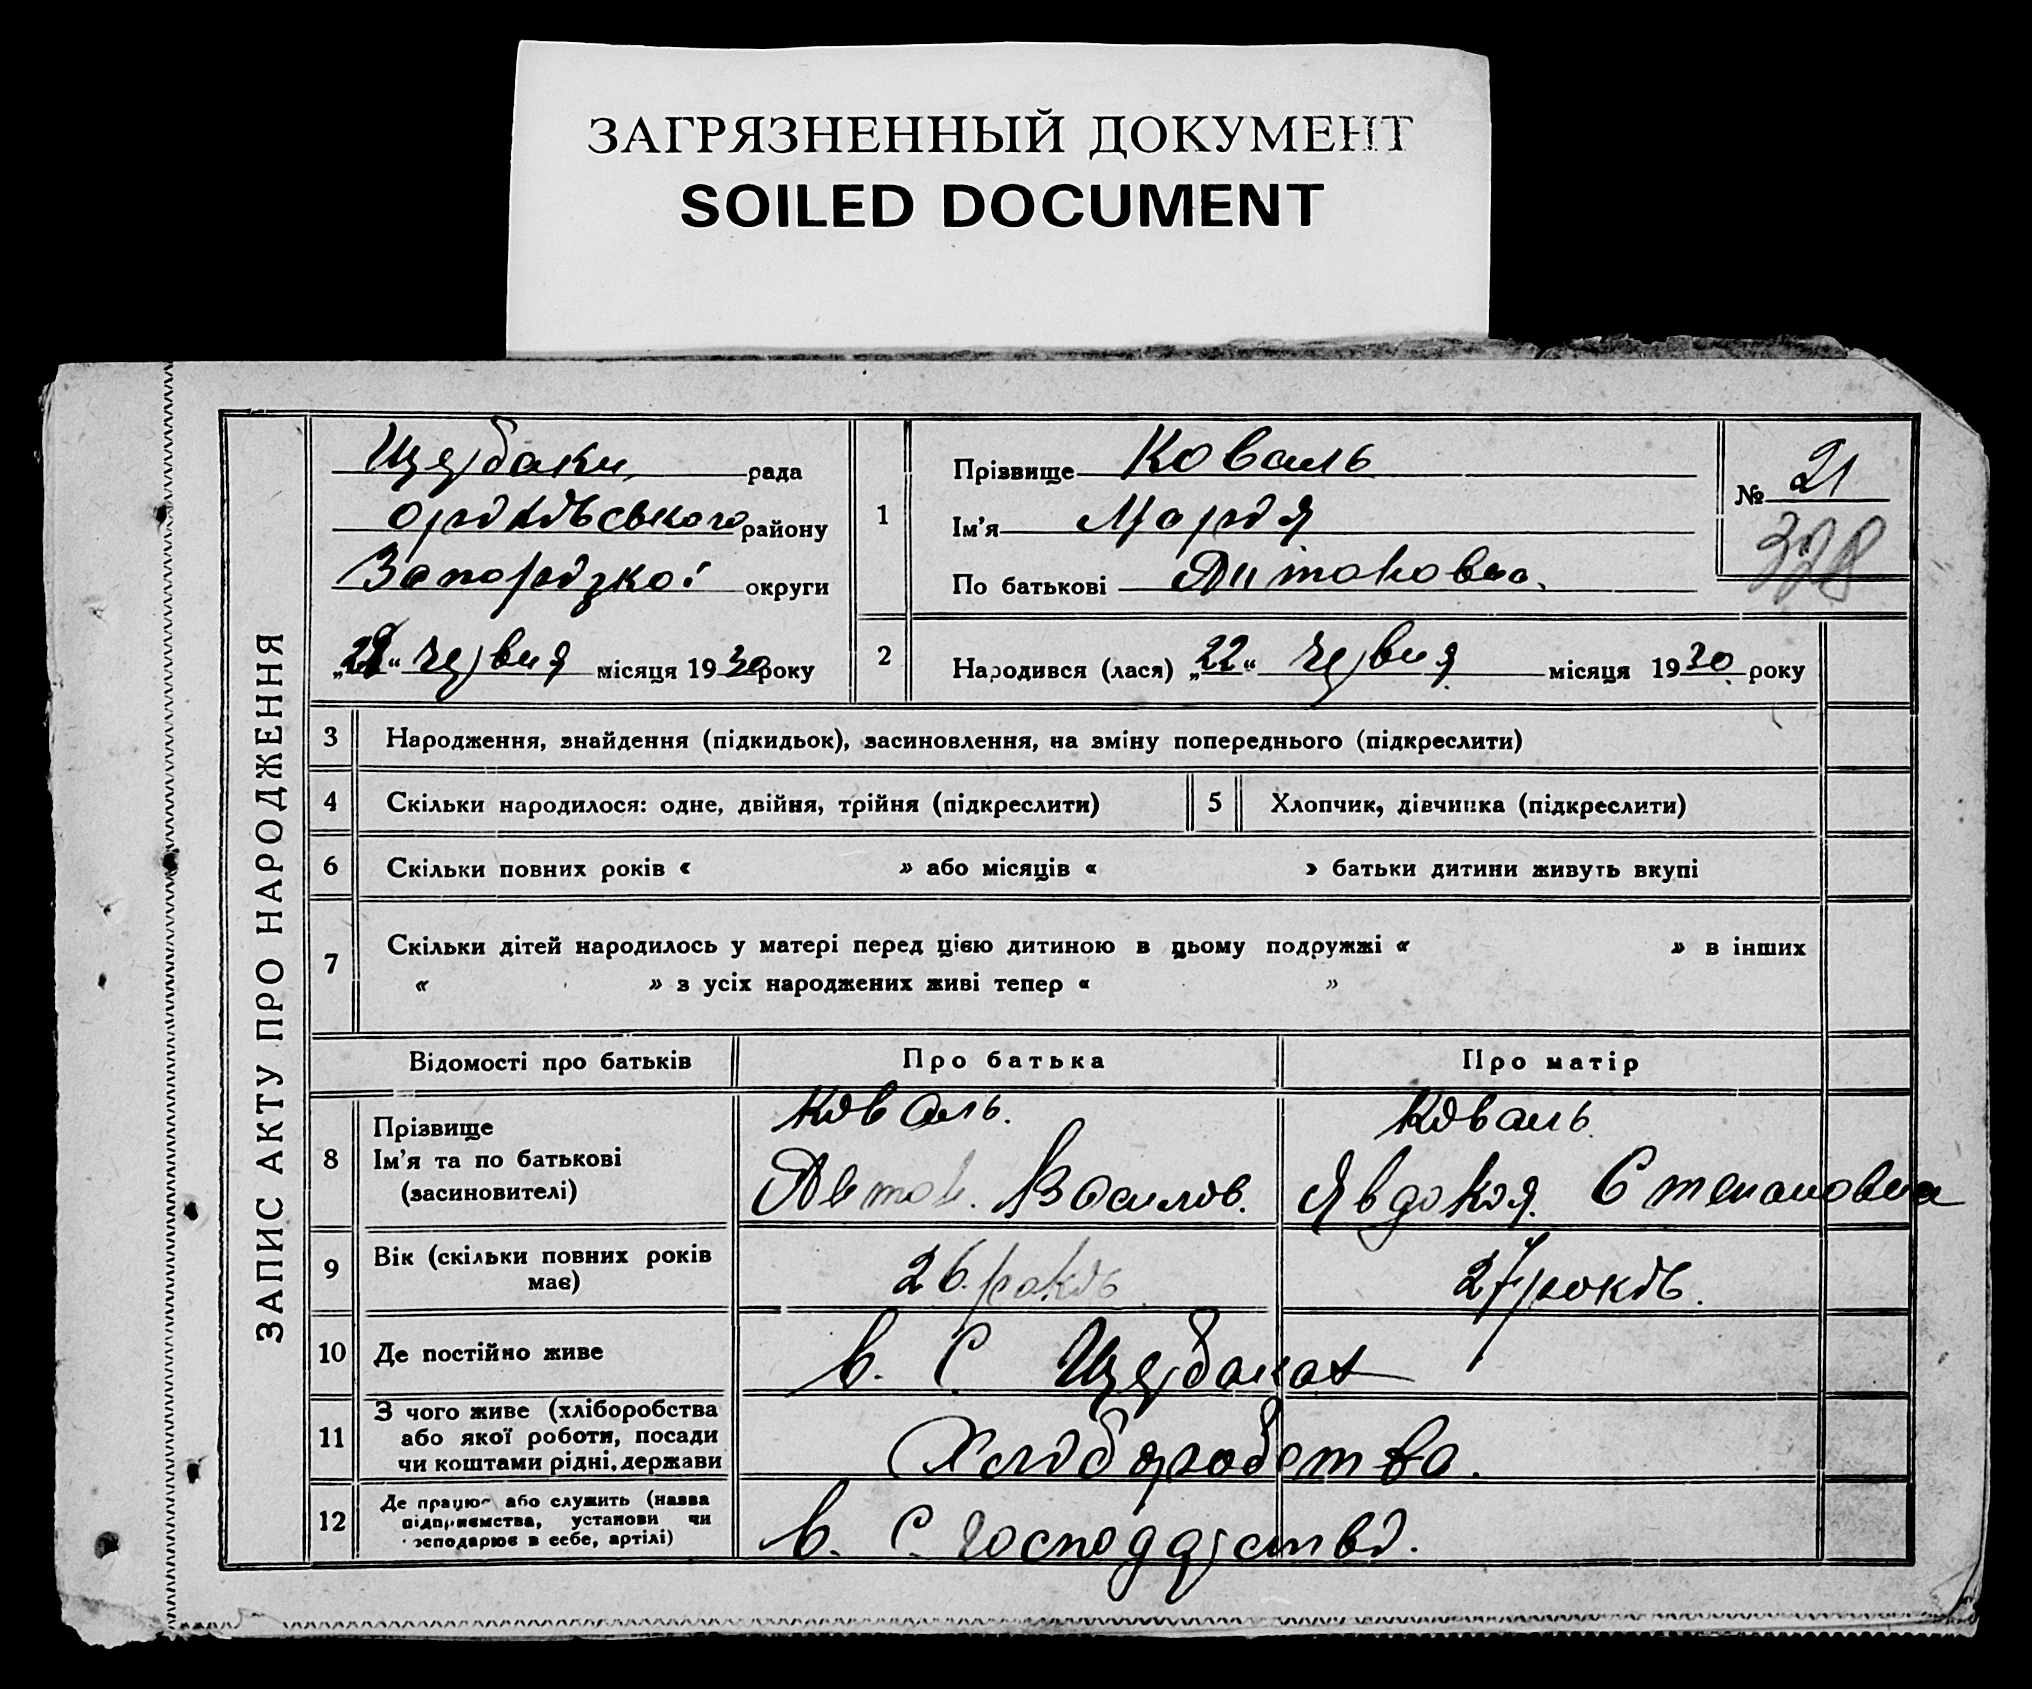 ЗАГРЯЗНЕННЫЙ ДОКУМЕНТ
SOILED DOCUMENT
ЗАПИС АКТУ ПРО НАРОДЖЕННЯ
Щербаки рада
району
округи
червня місяця 1930 року
1
Прізвище Коваль
Ім'я Марія
По батькові
№ 21
328
2
Народився (лася) „22“ червня місяця 1930 року
3 Народження, знайдення (підкидьок), засиновлення, на зміну попереднього (підкреслити)
4 Скільки народилося: одне, двійня, трійня (підкреслити) 5 Хлопчик, дівчинка (підкреслити)
6 Скільки повних років « » або місяців « » батьки дитини живуть вкупі
7 Скільки дітей народилось у матері перед цією дитиною в цьому подружжі « » в інших
« » з усіх народжених живі тепер « »
Відомості про батьків Про батька Про матір
8
Прізвище Коваль. Коваль
Ім'я та по батькові Василов. Явдокія Степановна
(засиновителі)
9 Вік (скільки повних років має) 26 років 27 років.
10 Де постійно живе в. С Щербаках
11 З чого живе (хліборобства
або якої роботи, посади
чи коштами рідні, держави
Хліборобства.
12 Де працює або служить (назва
підприємства, установи чи
господарює в себе, артілі)
в. С. Господарстві.